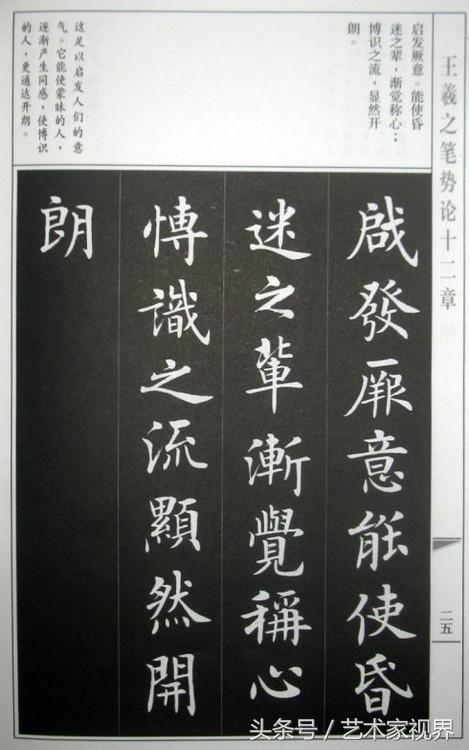 王羲之笔势论十二章
二五
启发厥意。能使昏
迷之辈，渐觉称心；
博识之流，显然开
朗。
这足以启发人们的意
气。它能使蒙昧的人，
逐渐产生同感，使博识
的人，更通达开朗。
啟發厥意能使昏
迷之輩漸覺稱心
愽識之流顯然開
朗
头条号／艺术家视界